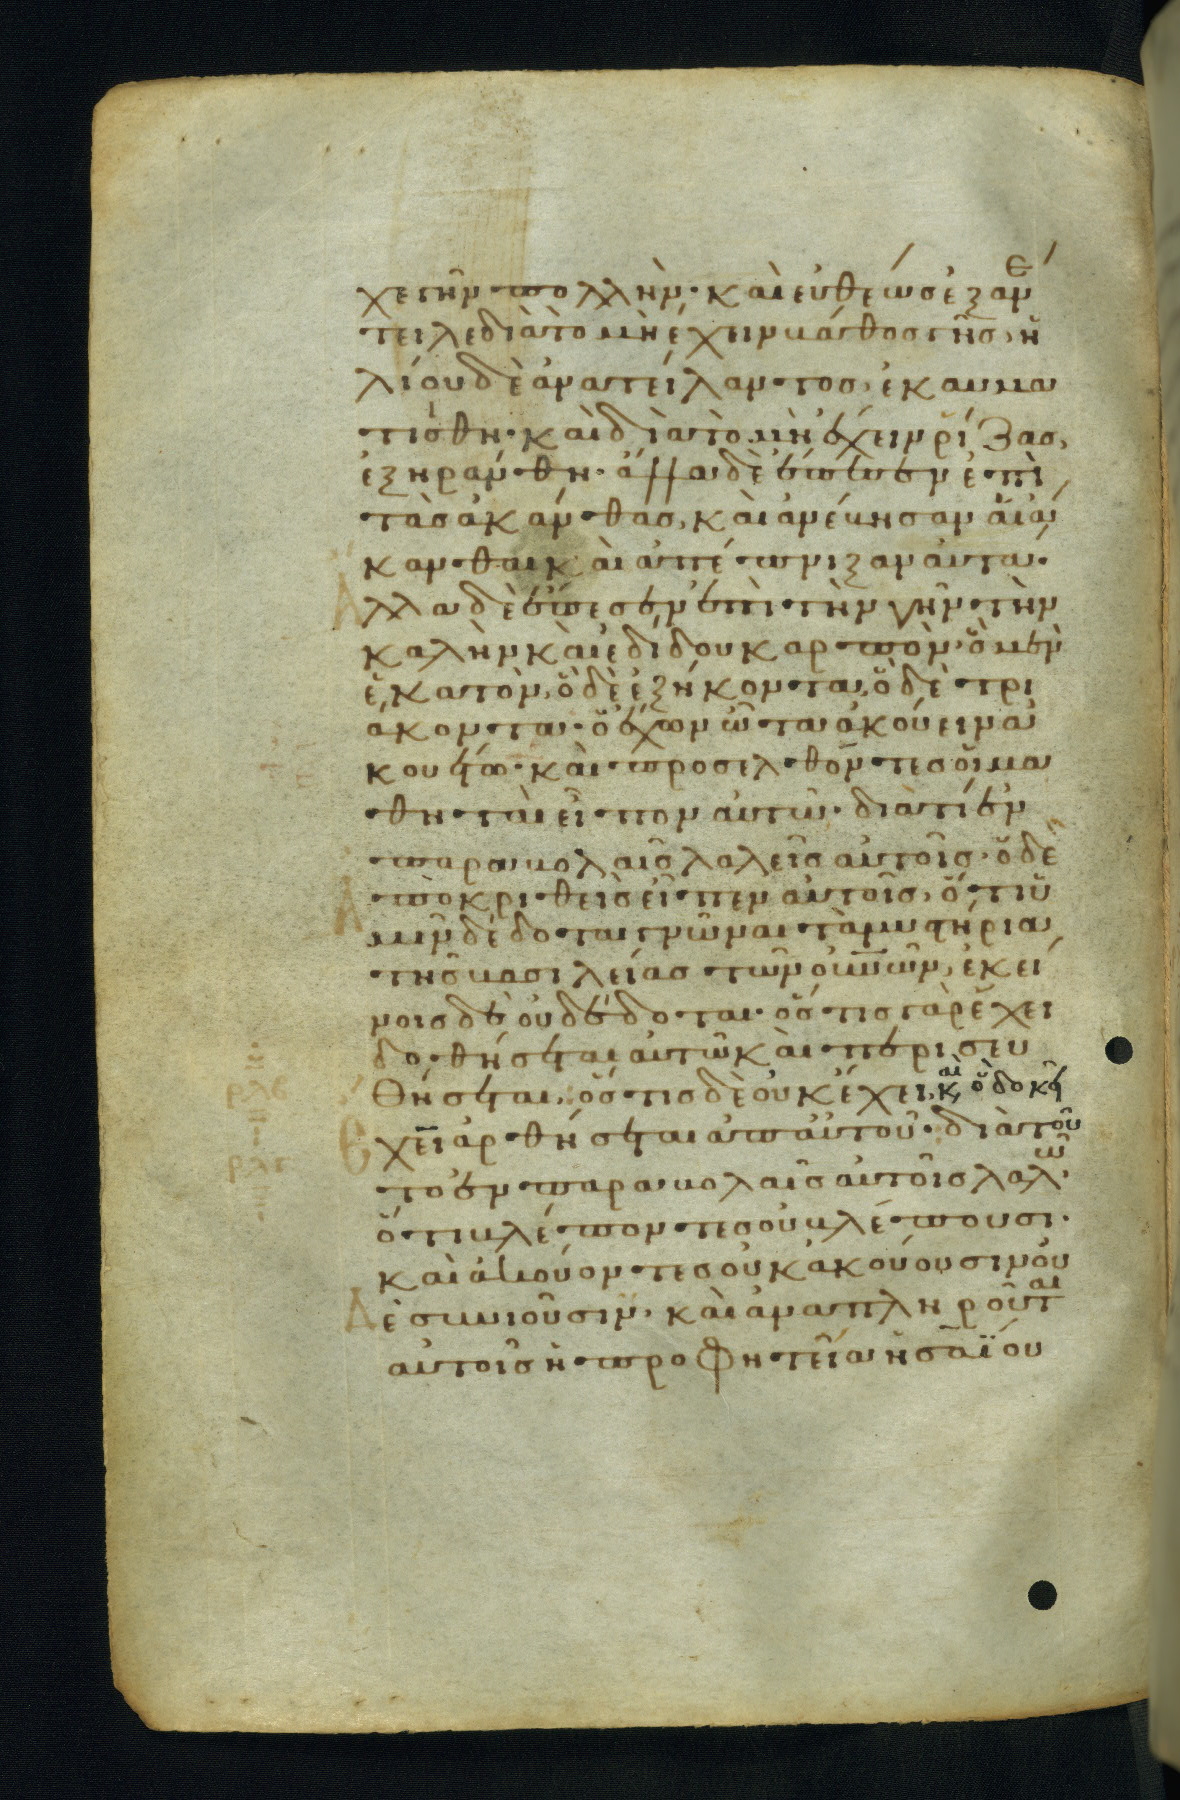 χε γῆν πολλὴν· καὶ εὐθέως ἐξαν
έτειλε διὰ τὸ μὴ ἔχειν βάθος γῆς, ἡ
λίου δὲ ἀνατείλαντος, ἐκαυμα
τίσθη· καὶ διὰ τὸ μὴ ἔχειν ῥίζας,
ἐξηράνθη· ἄλλα δὲ ἔπεσεν ἐπὶ
τὰς ἀκάνθας, καὶ ἀνέβησαν αἱ ἄ
κανθαι καὶ ἀπέπνιξαν αὐτά·
Ἄλλα δὲ ἔπεσεν ἐπὶ τὴν γῆν τὴν
καλὴν καὶ ἐδίδου καρπὸν· ὃ μὲν
ἑκατὸν, ὃ δὲ ἑξήκοντα, ὃ δὲ τρι
άκοντα· ὁ ἔχων ὦτα ἀκούειν ἀ
κουέτω· καὶ προσελθόντες οἱ μα
θηταὶ εἶπον αὐτῷ· διὰ τί ἐν
παραβολαῖς λαλεῖς αὐτοῖς· ὁ δὲ
Ἀποκριθεὶς εἶπεν αὐτοῖς, ὅτι ὑ
μῖν δέδοται γνῶναι τὰ μυστήρια
τῆς βασιλείας τῶν οὐνῶν, ἐκεί
νοις δὲ οὐ δέδοται· ὅστις γὰρ ἔχει
δοθήσεται αὐτῷ καὶ περισευ
θήσεται, ὅστις δὲ οὐκ ἔχει, καὶ ὃ δοκεῖ
Ἔχειν ἀρθήσεται ἀπ αὐτοῦ· διὰ τοῦ
το ἐν παραβολαῖς αὐτοῖς λαλῶ·
ὅτι βλέποντες οὐ βλέπουσι·
καὶ ἀκούοντες οὐκ ἀκούουσιν οὐ
Δὲ συνιοῦσιν· καὶ ἀναπληροῦται
αὐτοῖς ἡ προφητεία ἡσαΐου